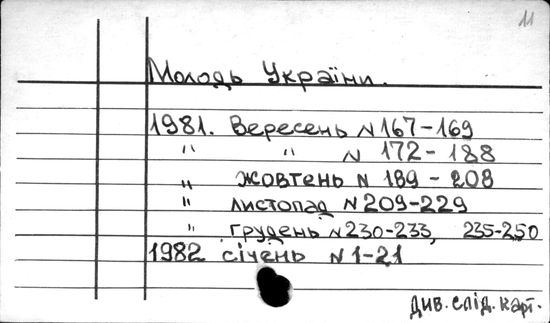 11
Молодь України.
1981. Вересень N 167-169
" " N 172-188
" жовтень N 189-208
" листопад N 209-229
" грудень N 230-233, 235-250
1982 січень N 1-21
Див. слід. карт.